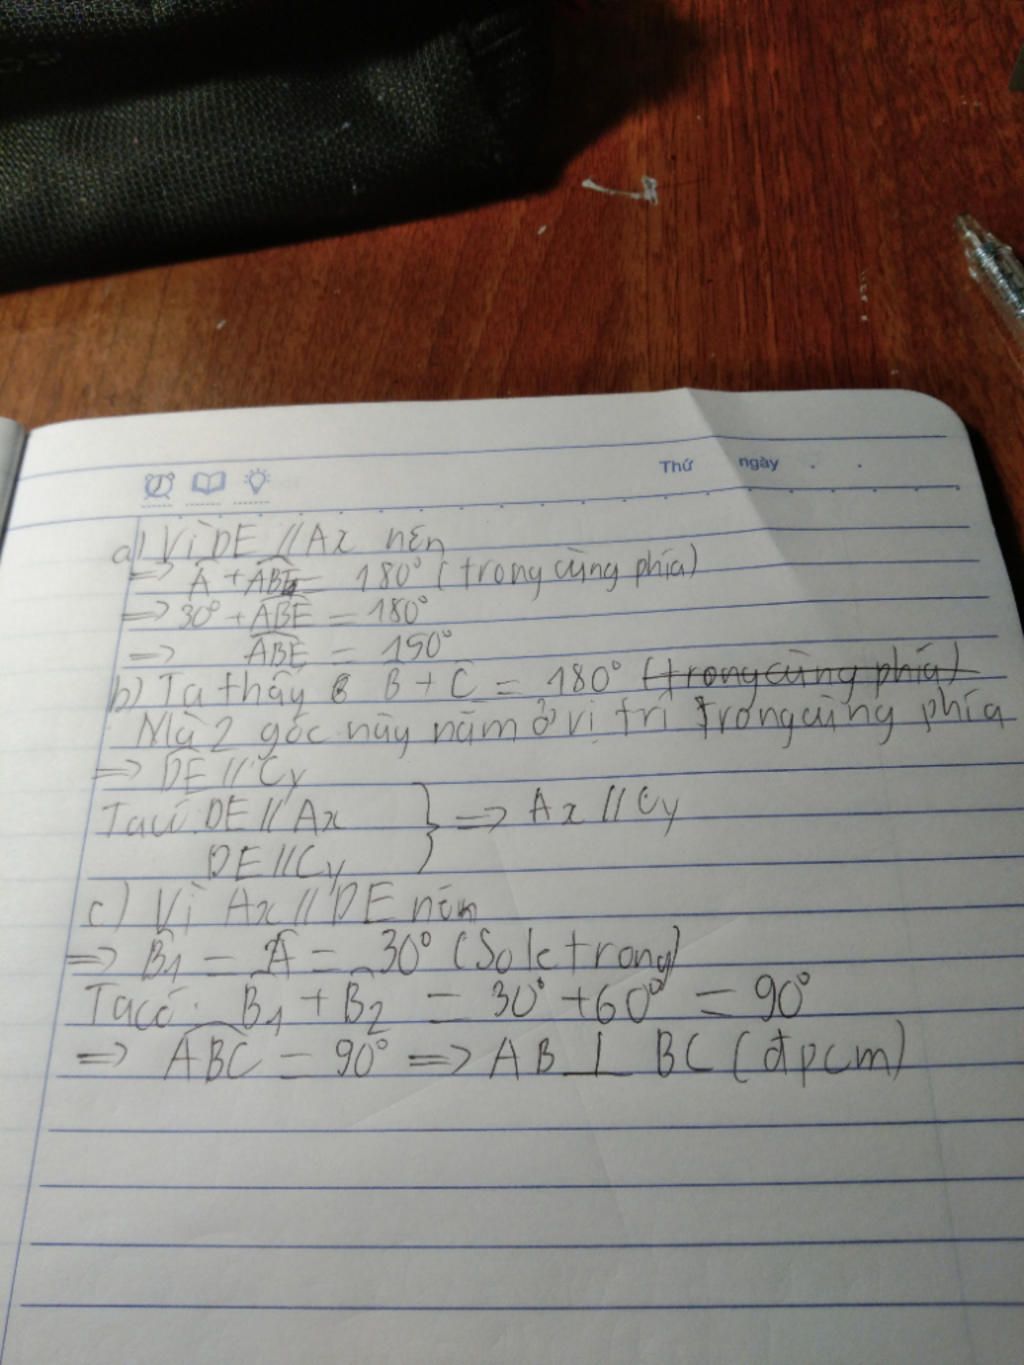 Thứ ngày . .
a) Vì DE // Ax nên
=> Â + ABE = 180° (trong cùng phía)
=> 30° + ABE = 180°
=> ABE = 150°
b) Ta thấy B + C = 180° (trong cùng phía)
Mà 2 góc này nằm ở vị trí trong cùng phía
=> DE // Cy
Ta có: DE // Ax } => Ax // Cy
DE // Cy
c) Vì Ax // DE nên
=> B̂1 = Â = 30° (So le trong)
Ta có: B̂1 + B̂2 = 30° + 60° = 90°
=> ABC = 90° => AB ⊥ BC (đpcm)